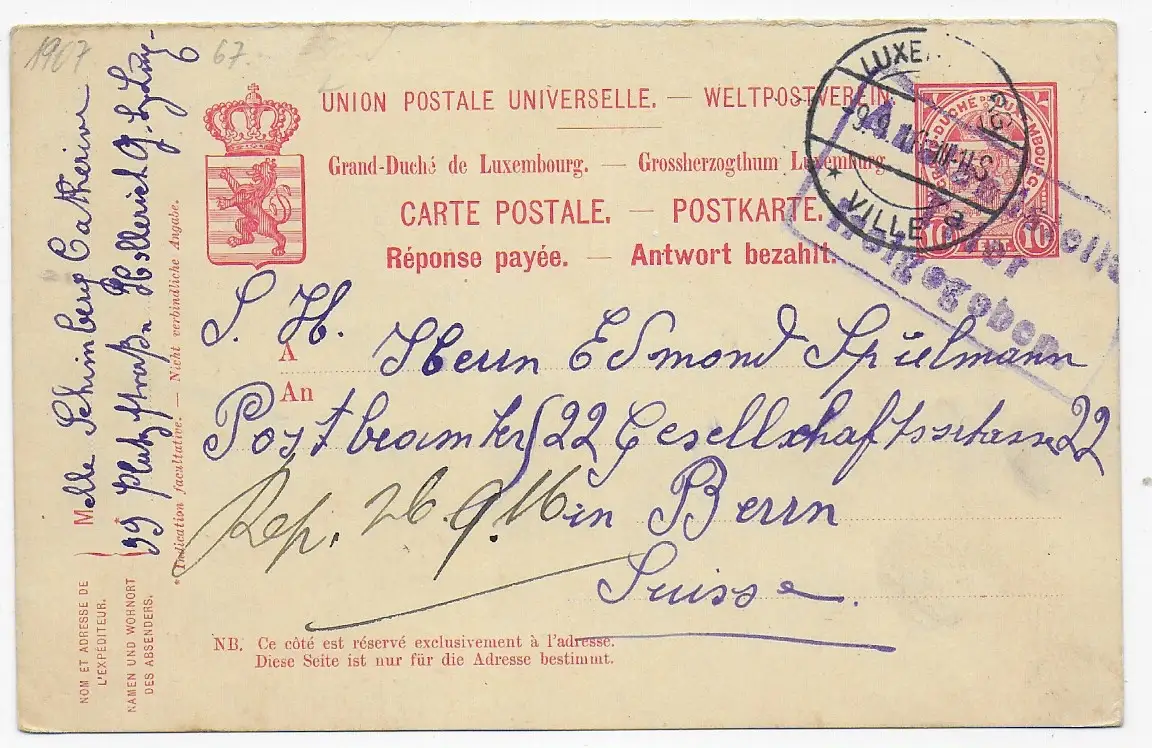 1907 67.
UNION POSTALE UNIVERSELLE. — WELTPOSTVEREIN
Grand-Duché de Luxembourg. — Grossherzogthum Luxemburg.
CARTE POSTALE. — POSTKARTE.
Réponse payée. — Antwort bezahlt.
LUXE
9.9.16
VILLE
10 10
freigegeben.
S. H.
A Herrn Edmond Spielmann
An
Postbeamter 22 Gesellschaftsstrasse 22
in Berrn
Suisse.
Rep. 26.9.16
NB. Ce côté est réservé exclusivement à l'adresse.
Diese Seite ist nur für die Adresse bestimmt.
Melle Schinberg Catherine
99 Hollerich
* Indication facultative. — Nicht verbindliche Angabe.
NOM ET ADRESSE DE
L'EXPÉDITEUR.
NAMEN UND WOHNORT
DES ABSENDERS.